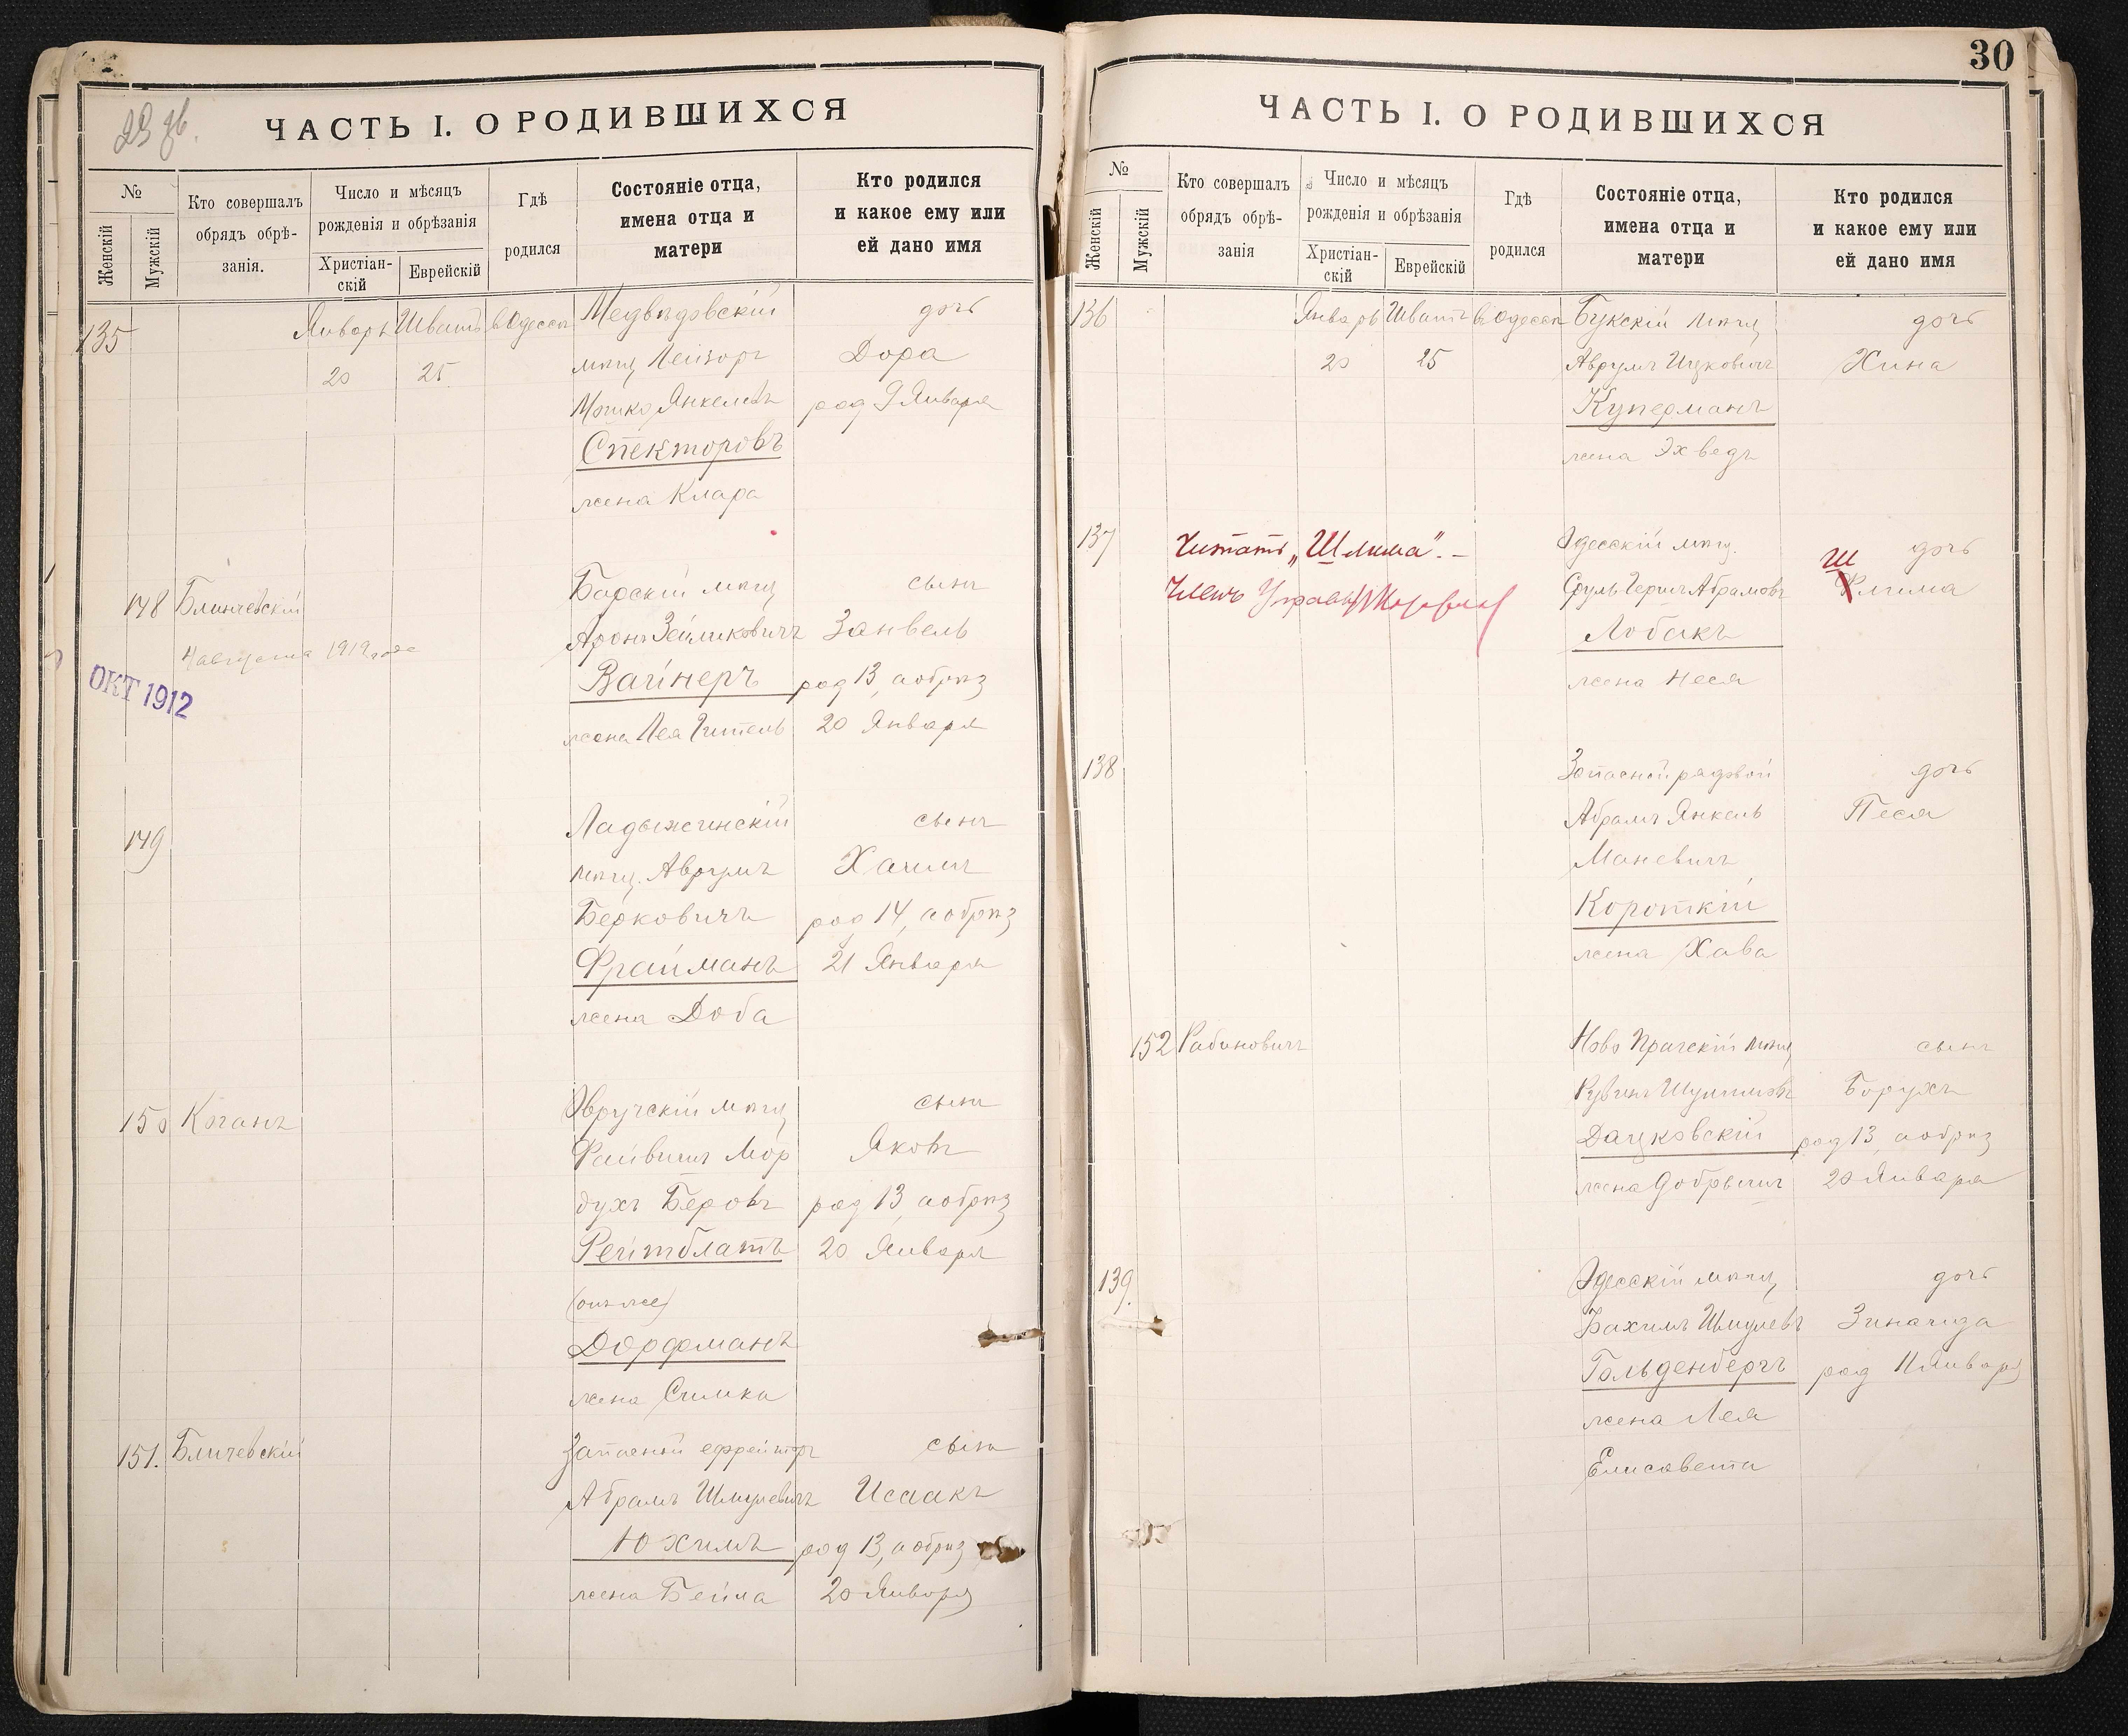 29 дв.
ЧАСТЬ I. О РОДИВШИХСЯ
№
Женскій
Мужскій
Кто совершалъ
обрядъ обрѣ-
занія.
Число и мѣсяцъ
рожденія и обрѣзанія
Христіан-
скій
Еврейскій
Гдѣ
родился
Состояніе отца,
имена отца и
матери
Кто родился
и какое ему или
ей дано имя
135
Январь Шватъ въ Одессѣ
20 25
Медвѣдовскій
мѣщ Лейзоръ
Мошко Янкелевъ
Спекторовъ
жена Клара
дочь
Дора
род 9 Января
148 Блинчевскій
4 августа 1912 года
ОКТ 1912
Барскій мѣщ
Аронъ Зейликовичъ
Вайнеръ
жена Лея Гитель
сынъ
Занвель
род 13, а обрѣз
20 Января
149
Ладыжинскій
мѣщ. Аврумъ
Берковичъ
Фрайманъ
жена Доба
сынъ
Хаимъ
род 14, а обрѣз
21 Января
150 Коганъ
Овручскій мѣщ
Файвишъ Мор
духъ Беровъ
Рейтблатъ
(онъ же)
Дорфманъ
жена Симка
сынъ
Яковъ
род 13, а обрѣз
20 Января
151. Бличевскій
Запасный ефрейторъ
Абрамъ Шмулевичъ
Юхимъ
жена Бейла
сынъ
Исаакъ
род 13, а обрѣз
20 Января
30
ЧАСТЬ I. О РОДИВШИХСЯ
№
Женскій
Мужскій
Кто совершалъ
обрядъ обрѣ-
занія
Число и мѣсяцъ
рожденія и обрѣзанія
Христіан-
скій
Еврейскій
Гдѣ
родился
Состояніе отца,
имена отца и
матери
Кто родился
и какое ему или
ей дано имя
136
Январь Шватъ въ Одессѣ
20 25
Букскій мѣщ
Аврумъ Ицковичъ
Куперманъ
жена Эхведъ
дочь
Хина
137
Читать „Шлима". –
Членъ Управы
Одесскій мѣщ.
Сруль Гершъ Абрамовъ
Лобакъ
жена Неся
дочь
Ш
Флима
138
Запасной рядовой
Абрамъ Янкель
Маневичъ
Короткій
жена Хава
дочь
Песя
152 Рабиновичъ
Ново Прагскій мѣщ
Рувинъ Шулимовъ
Дацковскій
жена Добрышъ
сынъ
Борухъ
род 13, а обрѣз
20 Января
139.
Одесскій мѣщ
Бахимъ Шмулевъ
Гольденбергъ
жена Лея
Елисавета
дочь
Зинаида
род 11 Января